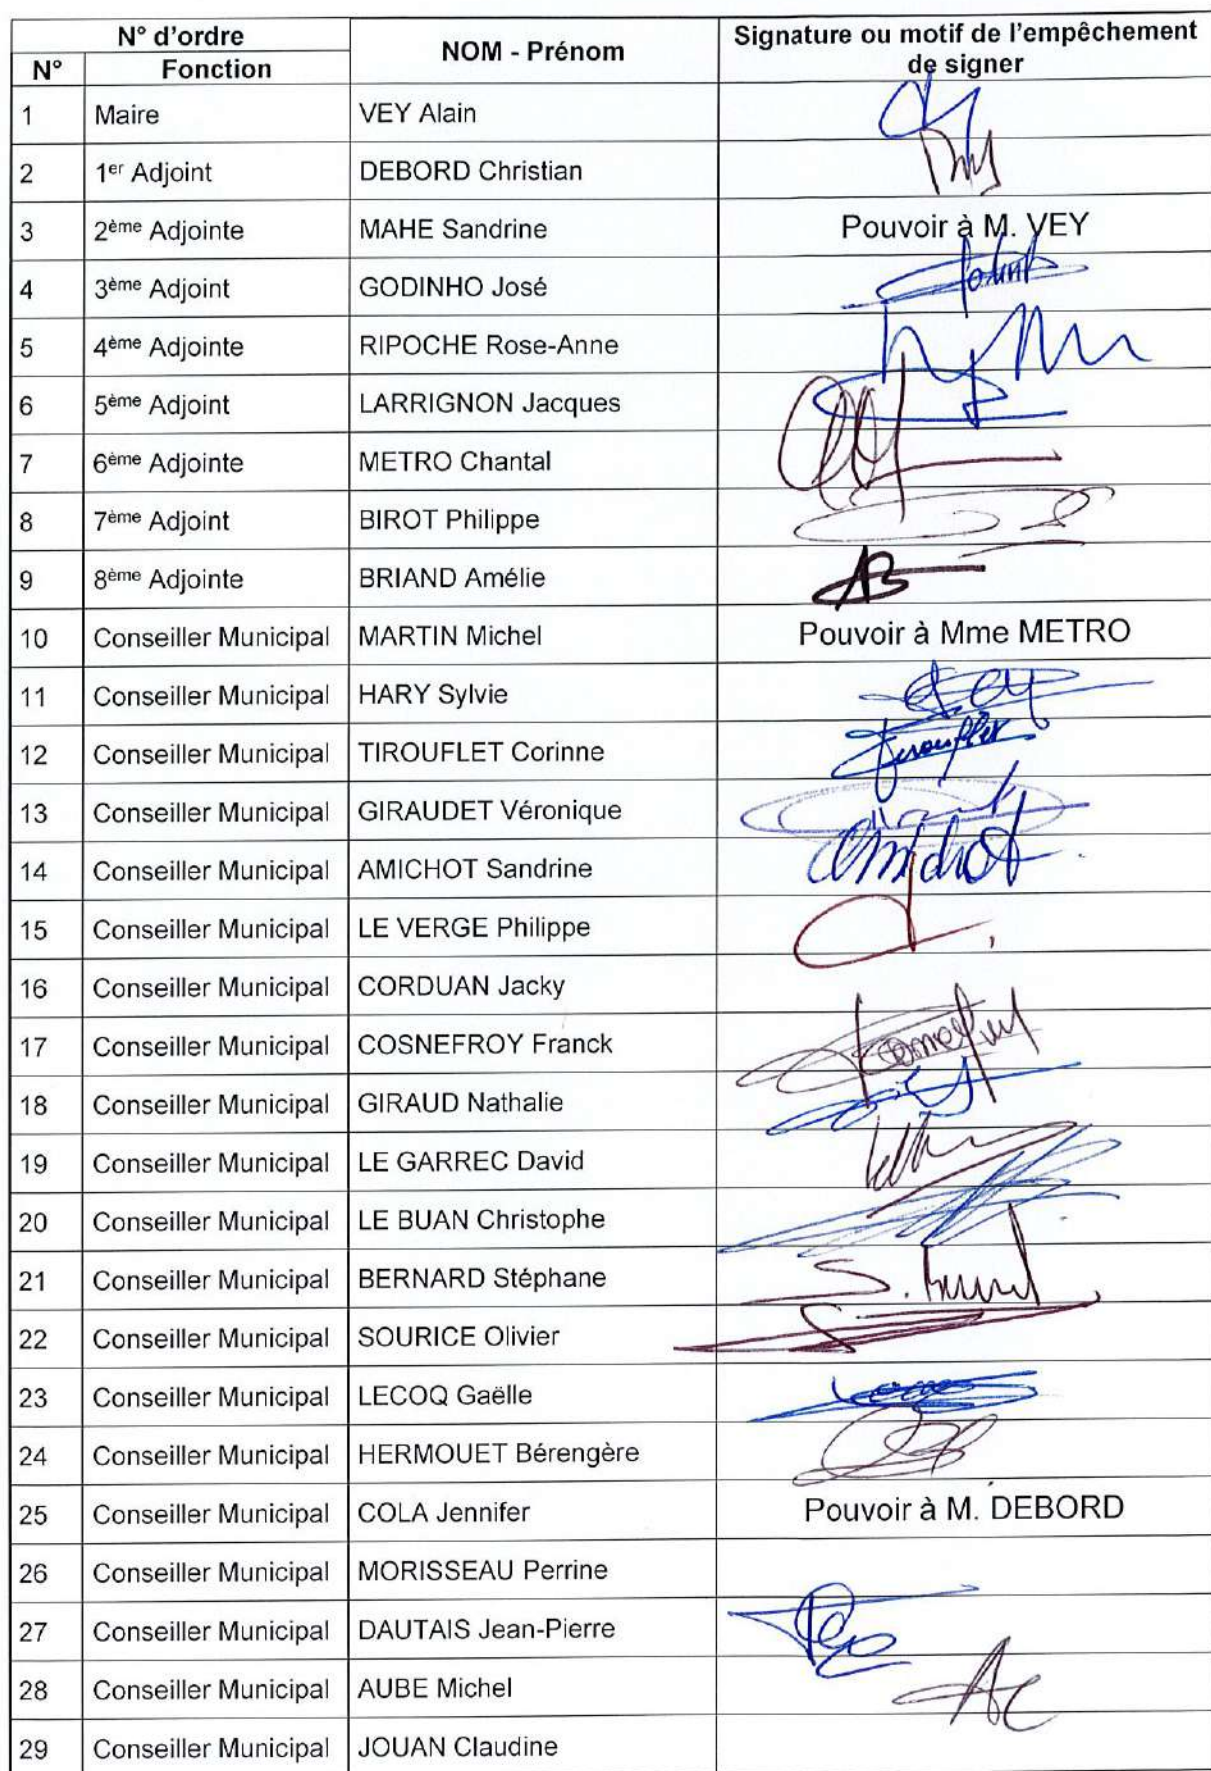 N° d'ordre
NOM - Prénom
Signature ou motif de l'empêchement
de signer
N° Fonction
1 Maire VEY Alain
2 1er Adjoint DEBORD Christian
3 2ème Adjointe MAHE Sandrine Pouvoir à M. VEY
4 3ème Adjoint GODINHO José
5 4ème Adjointe RIPOCHE Rose-Anne
6 5ème Adjoint LARRIGNON Jacques
7 6ème Adjointe METRO Chantal
8 7ème Adjoint BIROT Philippe
9 8ème Adjointe BRIAND Amélie AB
10 Conseiller Municipal MARTIN Michel Pouvoir à Mme METRO
11 Conseiller Municipal HARY Sylvie
12 Conseiller Municipal TIROUFLET Corinne Tirouflet
13 Conseiller Municipal GIRAUDET Véronique
14 Conseiller Municipal AMICHOT Sandrine Amichot
15 Conseiller Municipal LE VERGE Philippe
16 Conseiller Municipal CORDUAN Jacky
17 Conseiller Municipal COSNEFROY Franck
18 Conseiller Municipal GIRAUD Nathalie
19 Conseiller Municipal LE GARREC David
20 Conseiller Municipal LE BUAN Christophe
21 Conseiller Municipal BERNARD Stéphane
22 Conseiller Municipal SOURICE Olivier
23 Conseiller Municipal LECOQ Gaëlle
24 Conseiller Municipal HERMOUET Bérengère
25 Conseiller Municipal COLA Jennifer Pouvoir à M. DEBORD
26 Conseiller Municipal MORISSEAU Perrine
27 Conseiller Municipal DAUTAIS Jean-Pierre
28 Conseiller Municipal AUBE Michel
29 Conseiller Municipal JOUAN Claudine